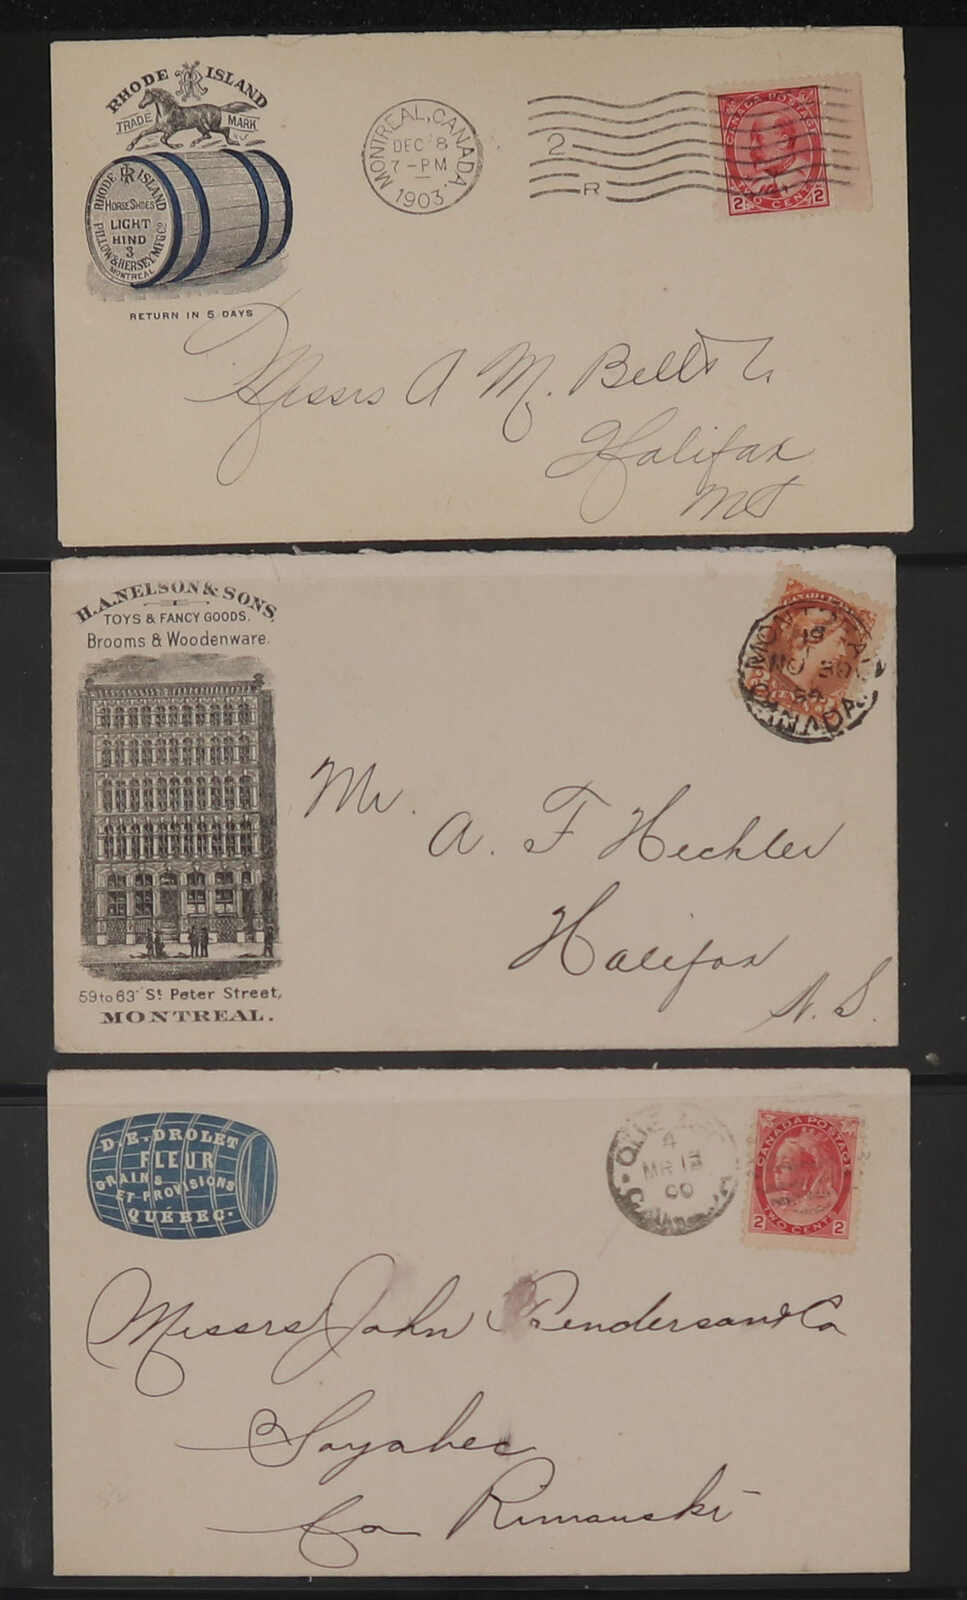 RHODE RI ISLAND
TRADE MARK
RHODE RI ISLAND
HORSE SHOES
LIGHT
HIND
3
PILLOW & HERSEY MF'G Co
MONTREAL
RETURN IN 5 DAYS
MONTREAL, CANADA.
DEC 8
7-PM
1903
2
R
CANADA POSTAGE
2 TWO CENTS 2
Messrs A M. Bell & Co
Halifax
NS
H.A. NELSON & SONS,
TOYS & FANCY GOODS.
Brooms & Woodenware.
59 to 63 St. Peter Street,
MONTREAL.
MONTREAL
19
NO 30
CANADA
Mr.
A. F Hechler
Halifax
N. S.
D. E. DROLET
FLEUR
GRAINS
ET PROVISIONS
QUÉBEC.
QUEBEC
4
MR 13
00
CANADA POSTAGE
2 TWO CENTS 2
Messrs John Fenderson & Co
Sayabec
Co Rimouski